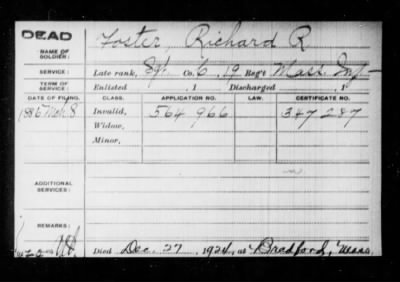 DEAD
Foster, Richard R
NAME OF SOLDIER:
SERVICE: Late rank, Sgt. Co. C, 19 Reg't Mass. Inf.
TERM OF SERVICE: Enlisted , 1 Discharged , 1
DATE OF FILING. CLASS. APPLICATION NO. LAW. CERTIFICATE NO.
1886 Mch 8 Invalid, 564 966 347 287
Widow,
Minor,
ADDITIONAL SERVICES:
REMARKS:
Died Dec. 27, 1924, at Bradford, Mass.